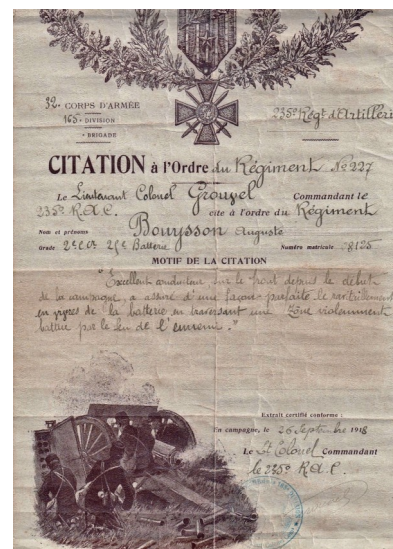 32e CORPS D'ARMÉE
165e DIVISION
e BRIGADE
235e Régt d'Artillerie
CITATION à l'Ordre du Régiment No 227
Le Lieutenant Colonel Groupel Commandant le
235e R.A.C. cite à l'ordre du Régiment
Nom et prénoms Bouysson Auguste
Grade 2e C. 25e Batterie Numéro matricule 08125
MOTIF DE LA CITATION
"Excellent conducteur sur le front depuis le début
de la campagne, a assuré d'une façon parfaite le ravitaillement
en vivres de la batterie en traversant une zone violemment
battue par le feu de l'ennemi."
Extrait certifié conforme :
En campagne, le 26 Septembre 1918
Le Lt Colonel Commandant
le 235e R.A.C.